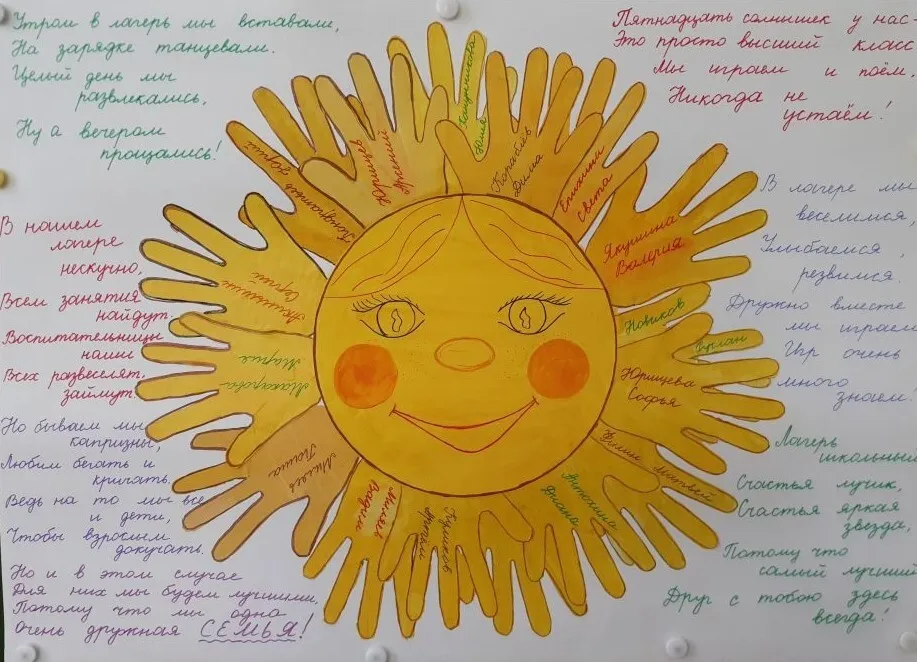 Утром в лагерь мы вставали,
На зарядке танцевали.
Целый день мы
развлекались,
Ну а вечером
прощались!
Пятнадцать солнышек у нас-
Это просто высший класс
Мы играем и поём,
Никогда не
устаём!
В нашем
лагере
нескучно,
Всем занятия
найдут.
Воспитательницы
наши
Всех развеселят,
займут.
Но бываем мы
капризны,
Любим бегать и
кричать,
Ведь на то мы все
и дети,
Чтобы взрослым
докучать.
Но и в этом случае
Для них мы будем лучшими.
Потому что мы одна
очень дружная СЕМЬЯ!
В лагере мы
веселимся,
Улыбаемся,
резвимся.
Дружно вместе
мы играем
Игр очень
много
знаем.
Лагерь
школьный
Счастья лучик,
Счастья яркая
звезда,
Потому что
самый лучший
Друг с тобою здесь
всегда!
Юлия
Корабль
Дима
Епихина
Света
Якушина
Валерия
Новиков
Юрищева
Софья
Матвей
Антошина
Диана
Михеев
Вадим
Паша
Макарова
Мария
Сергей
Арсений